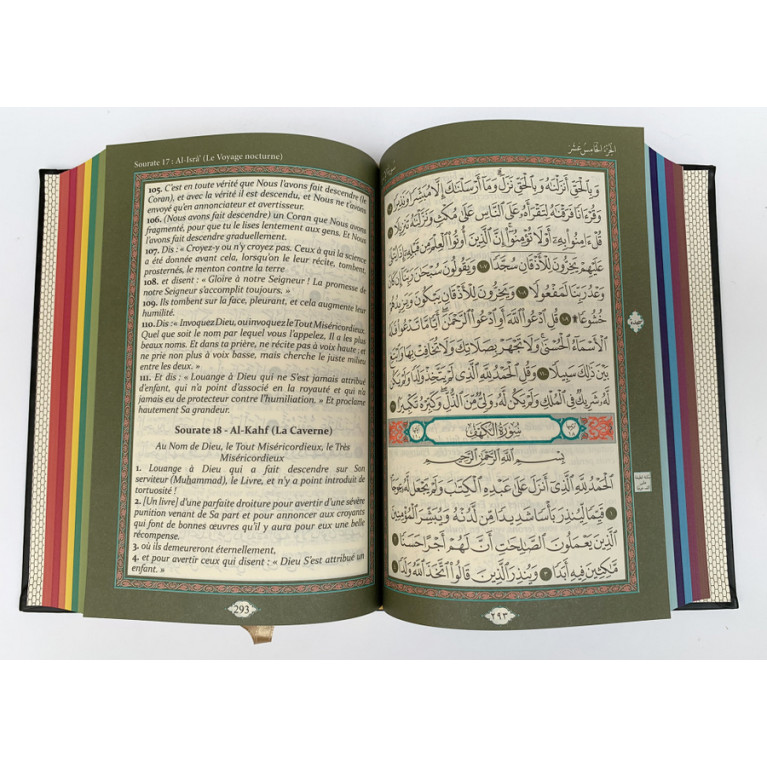 Sourate 17 : Al-Isrâ' (Le Voyage nocturne)
105. C'est en toute vérité que Nous l'avons fait descendre (le
Coran), et avec la vérité il est descendu, et Nous ne t'avons
envoyé qu'en annonciateur et avertisseur.
106. (Nous avons fait descendre) un Coran que Nous avons
fragmenté, pour que tu le lises lentement aux gens. Et Nous
l'avons fait descendre graduellement.
107. Dis : « Croyez-y ou n'y croyez pas. Ceux à qui la science
a été donnée avant cela, lorsqu'on le leur récite, tombent,
prosternés, le menton contre la terre
108. et disent : « Gloire à notre Seigneur ! La promesse de
notre Seigneur s'accomplit toujours. »
109. Ils tombent sur la face, pleurant, et cela augmente leur
humilité.
110. Dis : « Invoquez Dieu, ou invoquez le Tout Miséricordieux,
Quel que soit le nom par lequel vous l'appelez, Il a les plus
beaux noms. Et dans ta prière, ne récite pas à voix haute ; et
ne prie non plus à voix basse, mais cherche le juste milieu
entre les deux. »
111. Et dis : « Louange à Dieu qui ne S'est jamais attribué
d'enfant, qui n'a point d'associé en la royauté et qui n'a
jamais eu de protecteur contre l'humiliation. » Et proclame
hautement Sa grandeur.
Sourate 18 - Al-Kahf (La Caverne)
Au Nom de Dieu, le Tout Miséricordieux, le Très
Miséricordieux
1. Louange à Dieu qui a fait descendre sur Son
serviteur (Muḥammad), le Livre, et n'y a point introduit de
tortuosité !
2. [Un livre] d'une parfaite droiture pour avertir d'une sévère
punition venant de Sa part et pour annoncer aux croyants
qui font de bonnes œuvres qu'il y aura pour eux une belle
récompense.
3. où ils demeureront éternellement,
4. et pour avertir ceux qui disent : « Dieu S'est attribué un
enfant. »
293
الجزء الخامس عشر
وَبِالْحَقِّ أَنزَلْنَٰهُ وَبِالْحَقِّ نَزَلَ وَمَا أَرْسَلْنَٰكَ إِلَّا مُبَشِّرًا وَنَذِيرًا ١٠٥
وَقُرْءَانًا فَرَقْنَٰهُ لِتَقْرَأَهُ عَلَى النَّاسِ عَلَىٰ مُكْثٍ وَنَزَّلْنَٰهُ تَنزِيلًا ١٠٦
قُلْ ءَامِنُوا بِهِ أَوْ لَا تُؤْمِنُوا إِنَّ الَّذِينَ أُوتُوا الْعِلْمَ مِن قَبْلِهِ إِذَا يُتْلَىٰ
عَلَيْهِمْ يَخِرُّونَ لِلْأَذْقَانِ سُجَّدًا ١٠٧ وَيَقُولُونَ سُبْحَٰنَ رَبِّنَا إِن كَانَ
وَعْدُ رَبِّنَا لَمَفْعُولًا ١٠٨ وَيَخِرُّونَ لِلْأَذْقَانِ يَبْكُونَ وَيَزِيدُهُمْ
خُشُوعًا ۩ ١٠٩ قُلِ ادْعُوا اللَّهَ أَوِ ادْعُوا الرَّحْمَٰنَ أَيًّا مَّا تَدْعُوا فَلَهُ
الْأَسْمَاءُ الْحُسْنَىٰ وَلَا تَجْهَرْ بِصَلَاتِكَ وَلَا تُخَافِتْ بِهَا وَابْتَغِ
بَيْنَ ذَٰلِكَ سَبِيلًا ١١٠ وَقُلِ الْحَمْدُ لِلَّهِ الَّذِي لَمْ يَتَّخِذْ وَلَدًا وَلَمْ يَكُن
لَّهُ شَرِيكٌ فِي الْمُلْكِ وَلَمْ يَكُن لَّهُ وَلِيٌّ مِّنَ الذُّلِّ وَكَبِّرْهُ تَكْبِيرًا ١١١
سُورَةُ الْكَهْفِ
بِسْمِ اللَّهِ الرَّحْمَٰنِ الرَّحِيمِ
الْحَمْدُ لِلَّهِ الَّذِي أَنزَلَ عَلَىٰ عَبْدِهِ الْكِتَٰبَ وَلَمْ يَجْعَل لَّهُ عِوَجًا
١ قَيِّمًا لِّيُنذِرَ بَأْسًا شَدِيدًا مِّن لَّدُنْهُ وَيُبَشِّرَ الْمُؤْمِنِينَ
الَّذِينَ يَعْمَلُونَ الصَّٰلِحَٰتِ أَنَّ لَهُمْ أَجْرًا حَسَنًا ٢
مَّٰكِثِينَ فِيهِ أَبَدًا ٣ وَيُنذِرَ الَّذِينَ قَالُوا اتَّخَذَ اللَّهُ وَلَدًا ٤
٢٩٣